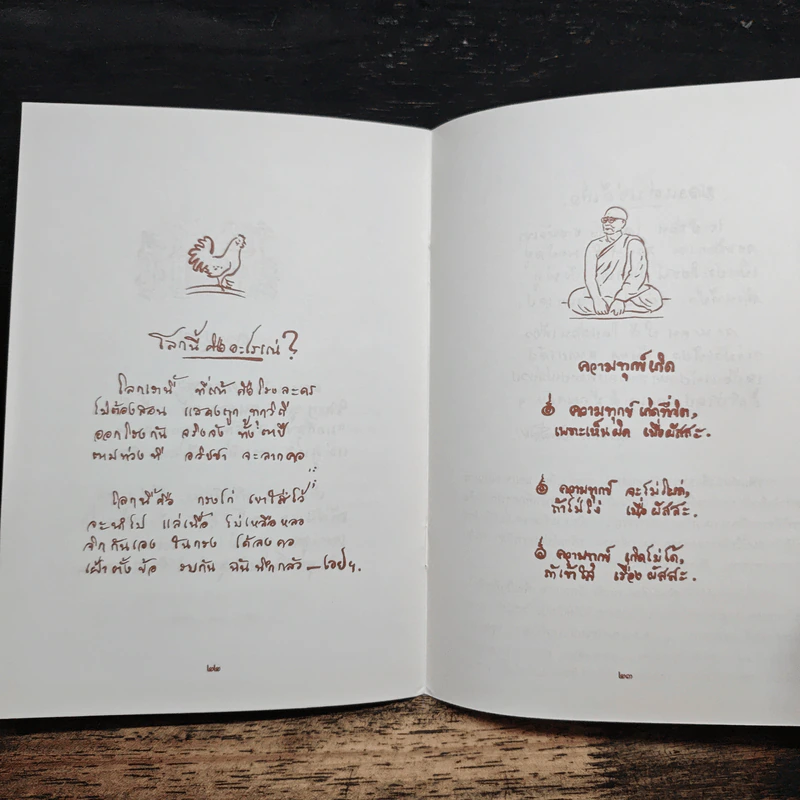 โลกนี้ คืออะไรแน่?
โลกเรานี้ ที่แท้ คือโรงละคร
ไม่ต้องสอน แสดงถูก ทุกวิถี
ออกโรงกัน จริงจัง ทั้งตาปี
ตามท่วงที อวิชชา จะลากคอ
โลกนี้คือ กรงไก่ เขาใส่ไว้
จะนำไป แล่เนื้อ ไม่เหลือหลอ
จิกกันเอง ในกรง ได้ลงคอ
เฝ้าตั้งข้อ รบกัน ฉันนึกกลัว — เอย ฯ.
๒๒
ความทุกข์เกิด
ความทุกข์ เกิดที่จิต,
เพราะเห็นผิด เมื่อผัสสะ.
ความทุกข์ จะไม่โผล่,
ถ้าไม่โง่ เมื่อผัสสะ.
ความทุกข์ เกิดไม่ได้,
ถ้าเข้าใจ เรื่องผัสสะ.
๒๓